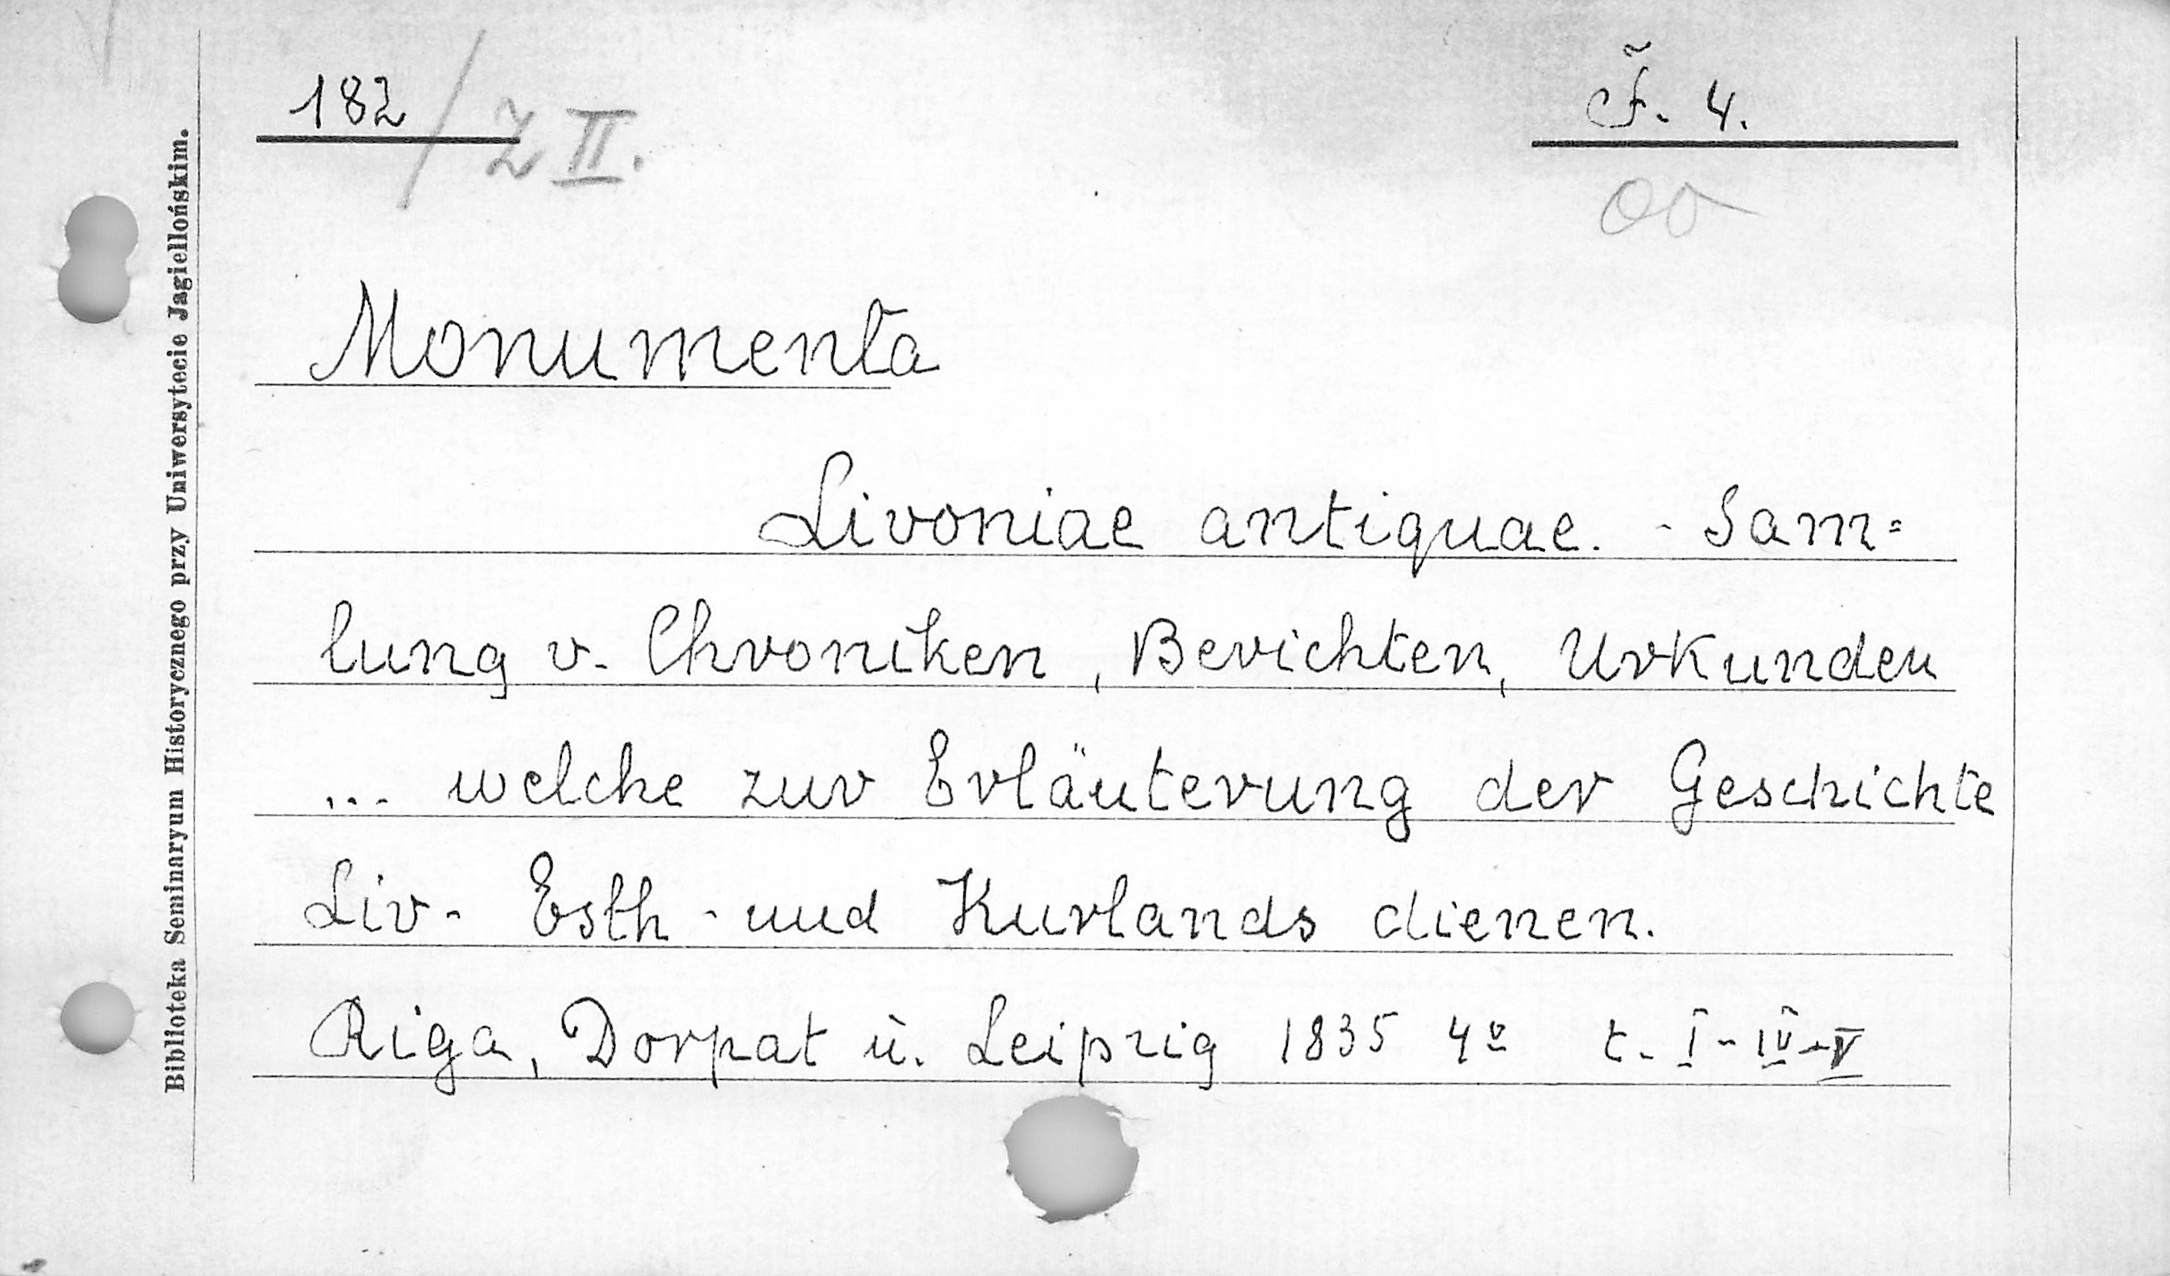 182 / Z II.
F. 4.
Monumenta
Livoniae antiquae. - Sam=
lung v. Chroniken, Berichten, Urkunden
... welche zur Erläuterung der Geschichte
Liv- Esth - und Kurlands dienen.
Riga, Dorpat u. Leipzig 1835 4º t. I - IV - V
Biblioteka Seminaryum Historycznego przy Uniwersytecie Jagiellońskim.